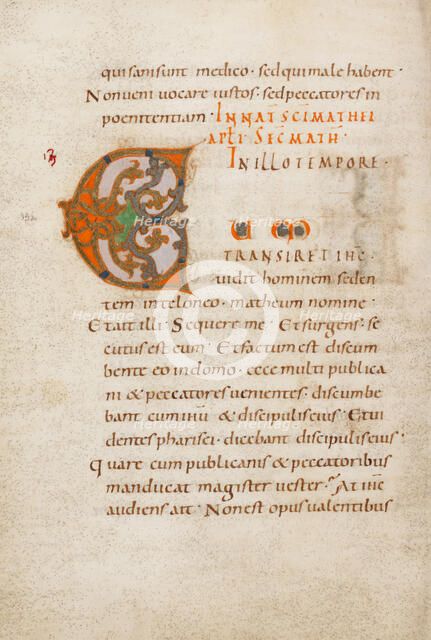 qui sani sunt medico · sed qui male habent ·
Non veni vocare iustos · sed peccatores in
poenitentiam · IN NAT̅ S̅C̅I MATHEI
APT̅I SEC̅ MATH̅ ·
IN ILLO TEMPORE ·
C U M
TRANSIRET IH̅C
vidit hominem seden
tem in teloneo · matheum nomine ·
Et ait illi · Sequere me · Et surgens · se
cutus est eum · Et factum est discum
bente eo in domo · ecce multi publica
ni & peccatores venientes · discumbe
bant cum ih̅u & discipulis eius · Et vi
dentes pharisei · dicebant discipulis eius ·
Quare cum publicanis & peccatoribus
manducat magister vester · At ih̅c
audiens ait · Non est opus valentibus
Heritage
Heritage
Heritage
Heritage
Heritage
Heritage